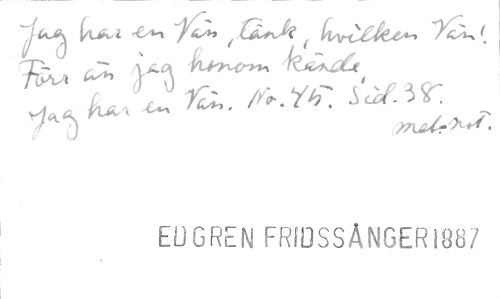 Jag har en Vän, tänk, hvilken Vän!
Förr än jag honom kände,
Jag har en Vän. No. 45. Sid. 38.
mel. not.
EDGREN FRIDSSÅNGER 1887